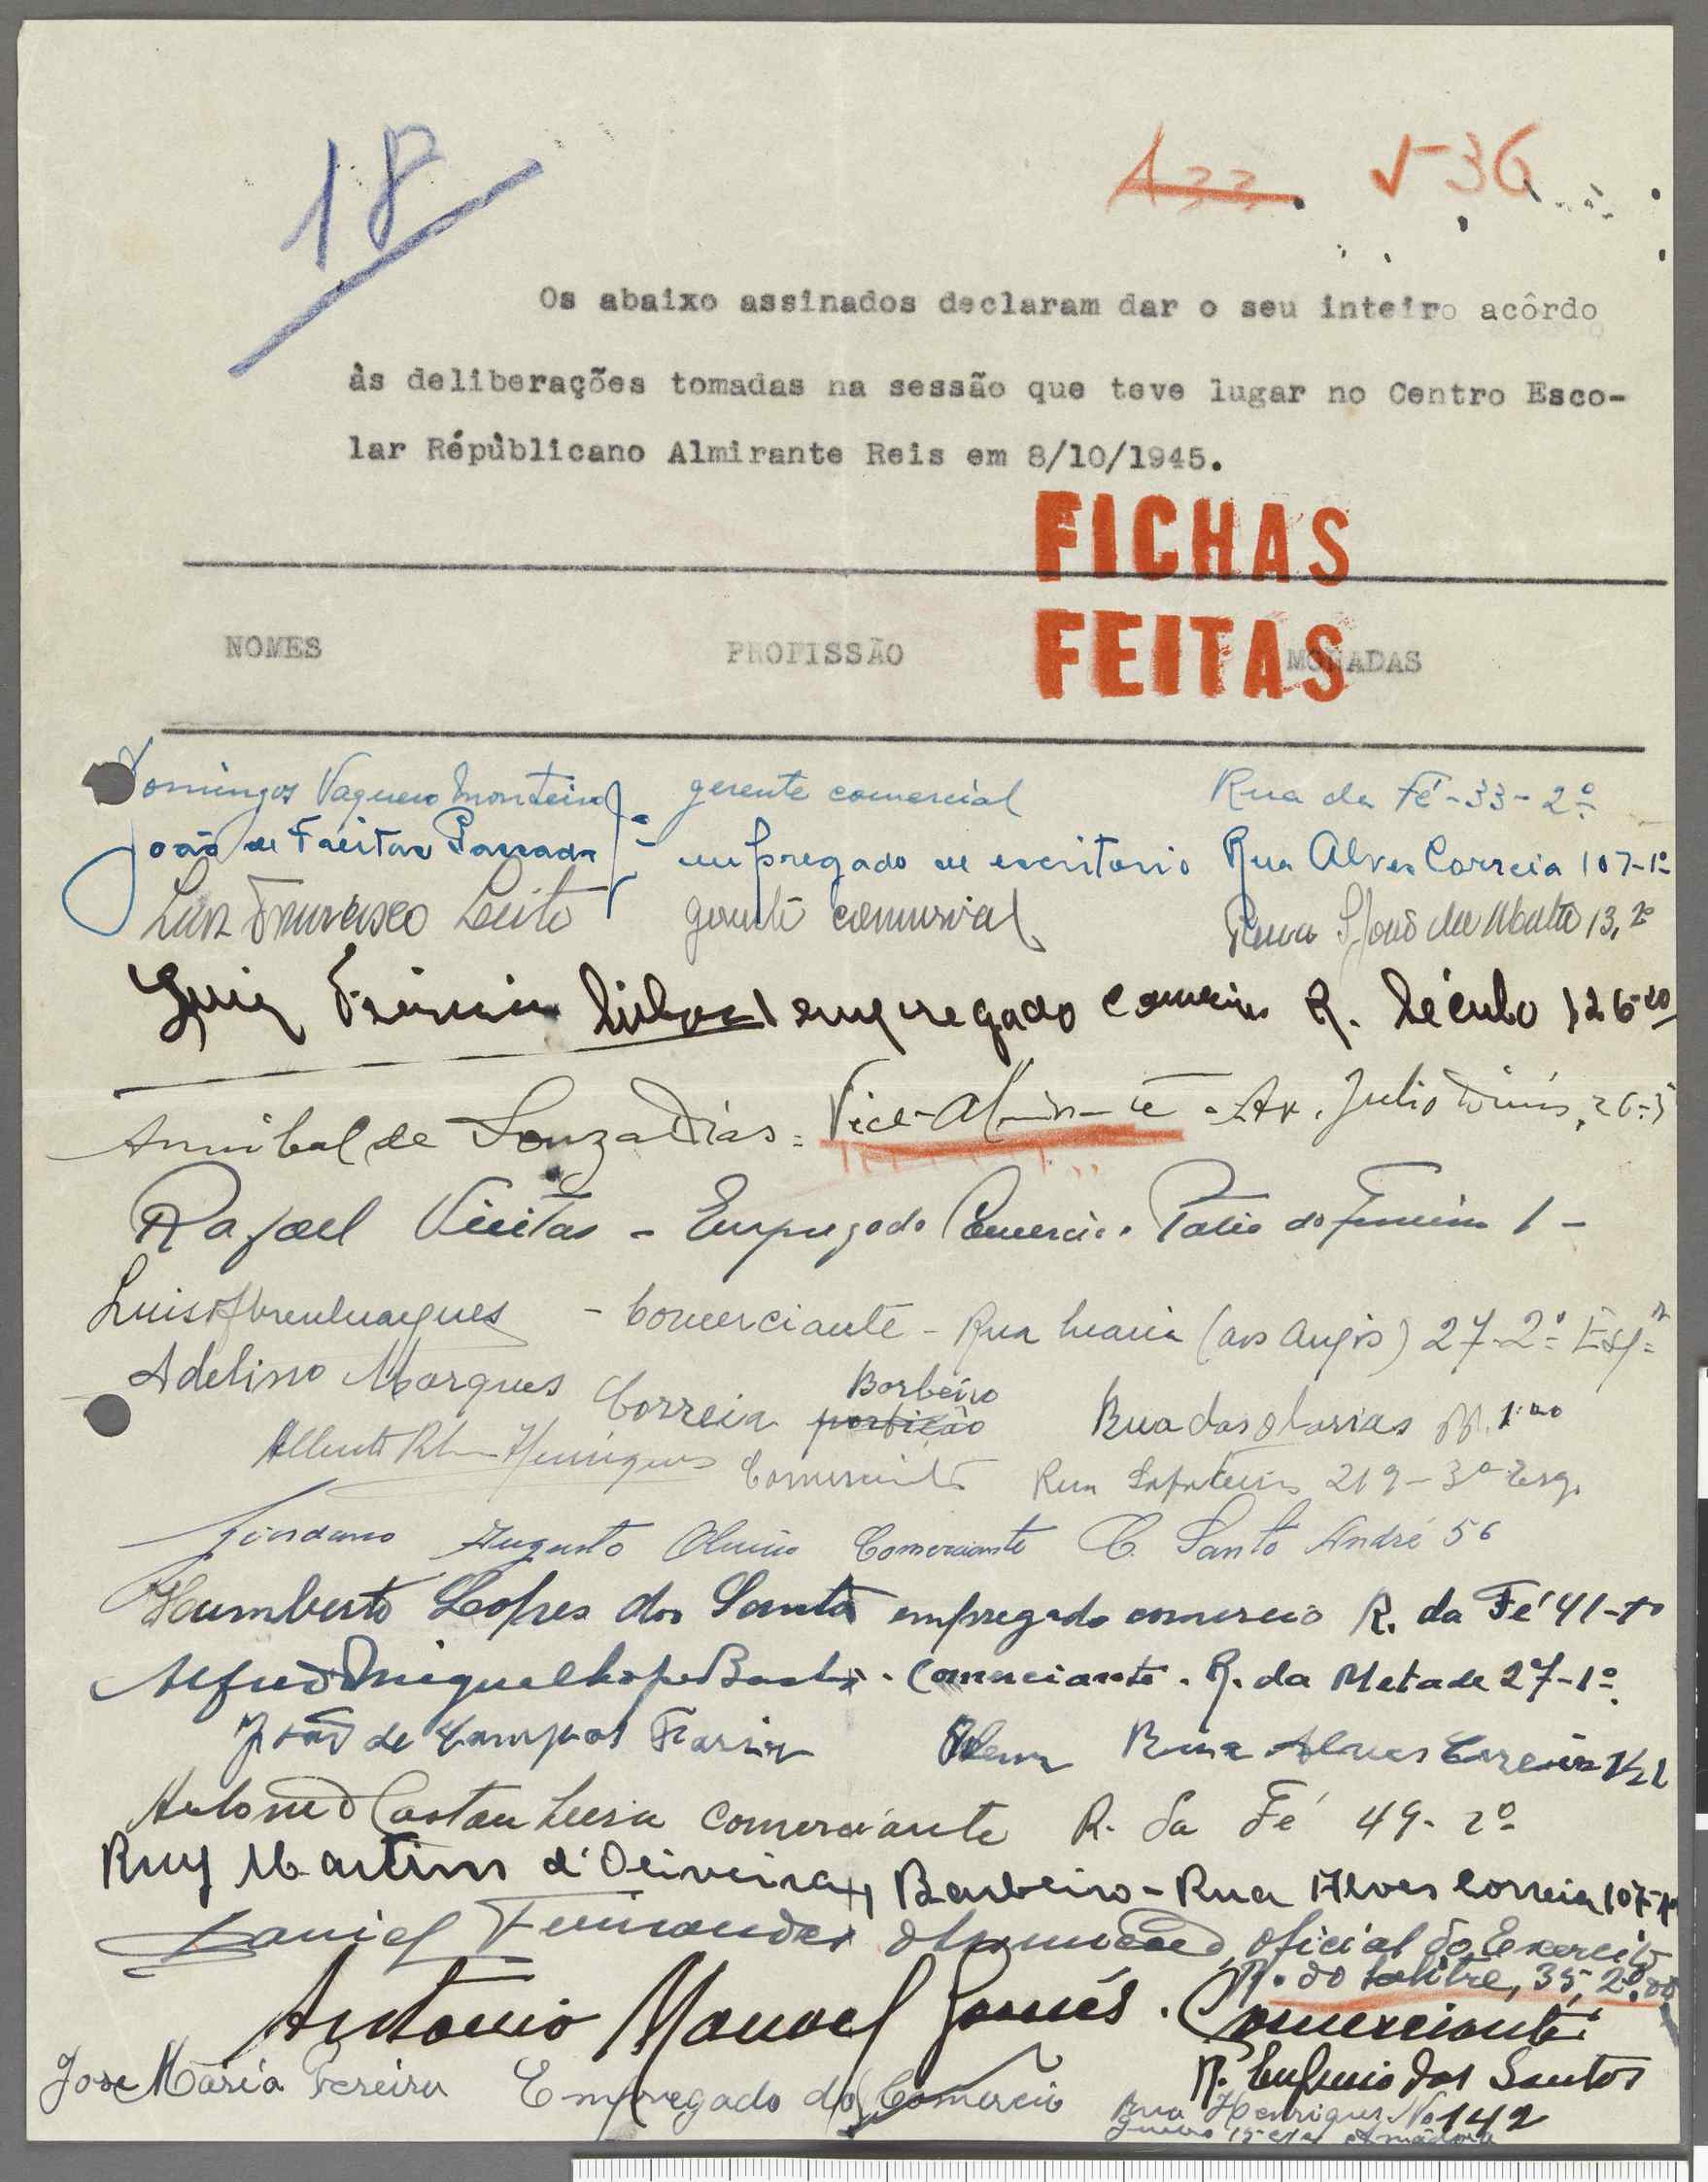 18
√-36
Os abaixo assinados declaram dar o seu inteiro acôrdo
às deliberações tomadas na sessão que teve lugar no Centro Esco-
lar Républicano Almirante Reis em 8/10/1945.
FICHAS
FEITAS
NOMES PROFISSÃO MORADAS
Domingos Vaquero Monteiro gerente comercial Rua da Fé-33-2º
João de Freitas empregado de escritorio Rua Alves Correia 107-1º
Luiz Francisco Leite gerente comercial Rua S. João da Matta 13, 2º
Luiz Lisboa empregado comercio R. Século 126
Annibal de Souza Dias = Vice-Almirante - Av. Julio Dinis, 26-3
Rafael Vieitas - Empregado Comercio. Patio do 1 -
Luis Marques - Comerciante - Rua Maria (aos Anjos) 27-2º Esq.
Adelino Marques Correia Barbeiro Rua das Olarias
Alberto Henriques Comerciante Rua Sapateiros 219-3º Esq.
Giordano Augusto Comerciante C. Santo André 56
Humberto Lopes dos Santos empregado comercio R. da Fé 41-1º
Alfredo Miguel Lopes Bastos. Comerciante. R. da Metade 27-1º
João de Campos Faria Idem Rua Alves Correia
Antonio Castanheira Comerciante R. da Fé 49-2º
Ruy Martins d'Oliveira, Barbeiro - Rua Alves Correia 107-1º
Daniel Fernandes oficial do Exercito
R. do Salitre, 35, 2º
Antonio Manoel Gomes. Comerciante
R. Eugenio dos Santos
142
Jose Maria Pereira Empregado do Comercio Rua Henrique
Amadora